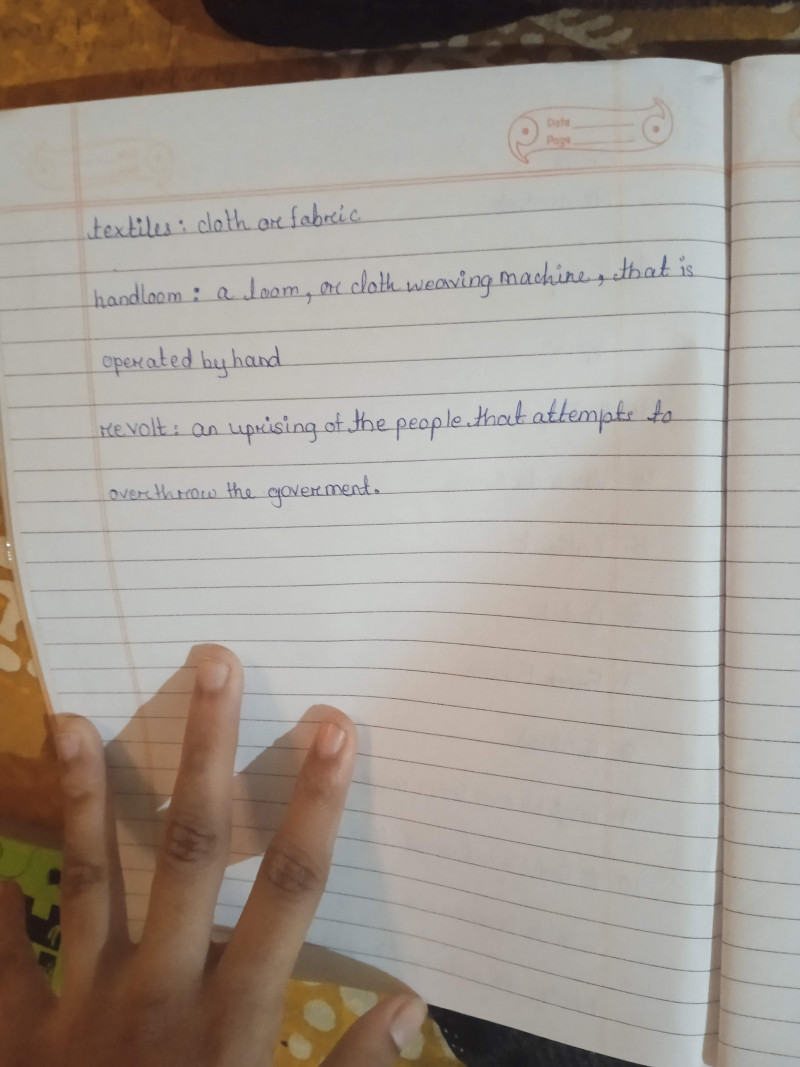 Date
Page
textiles: cloth or fabric
handloom: a loom, or cloth weaving machine, that is
operated by hand
revolt: an uprising of the people that attempts to
overthrow the goverment.